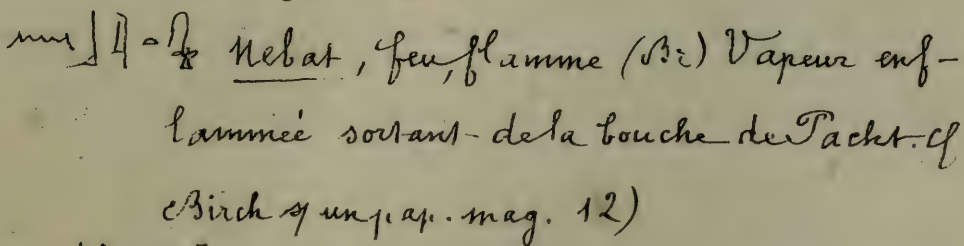 𓈖𓃀𓄿𓏏𓊮 Nebat, feu, flamme (Bi) Vapeur enf-
lammée sortant de la bouche de Pacht. cf
Birch s/ un pap. mag. 12)